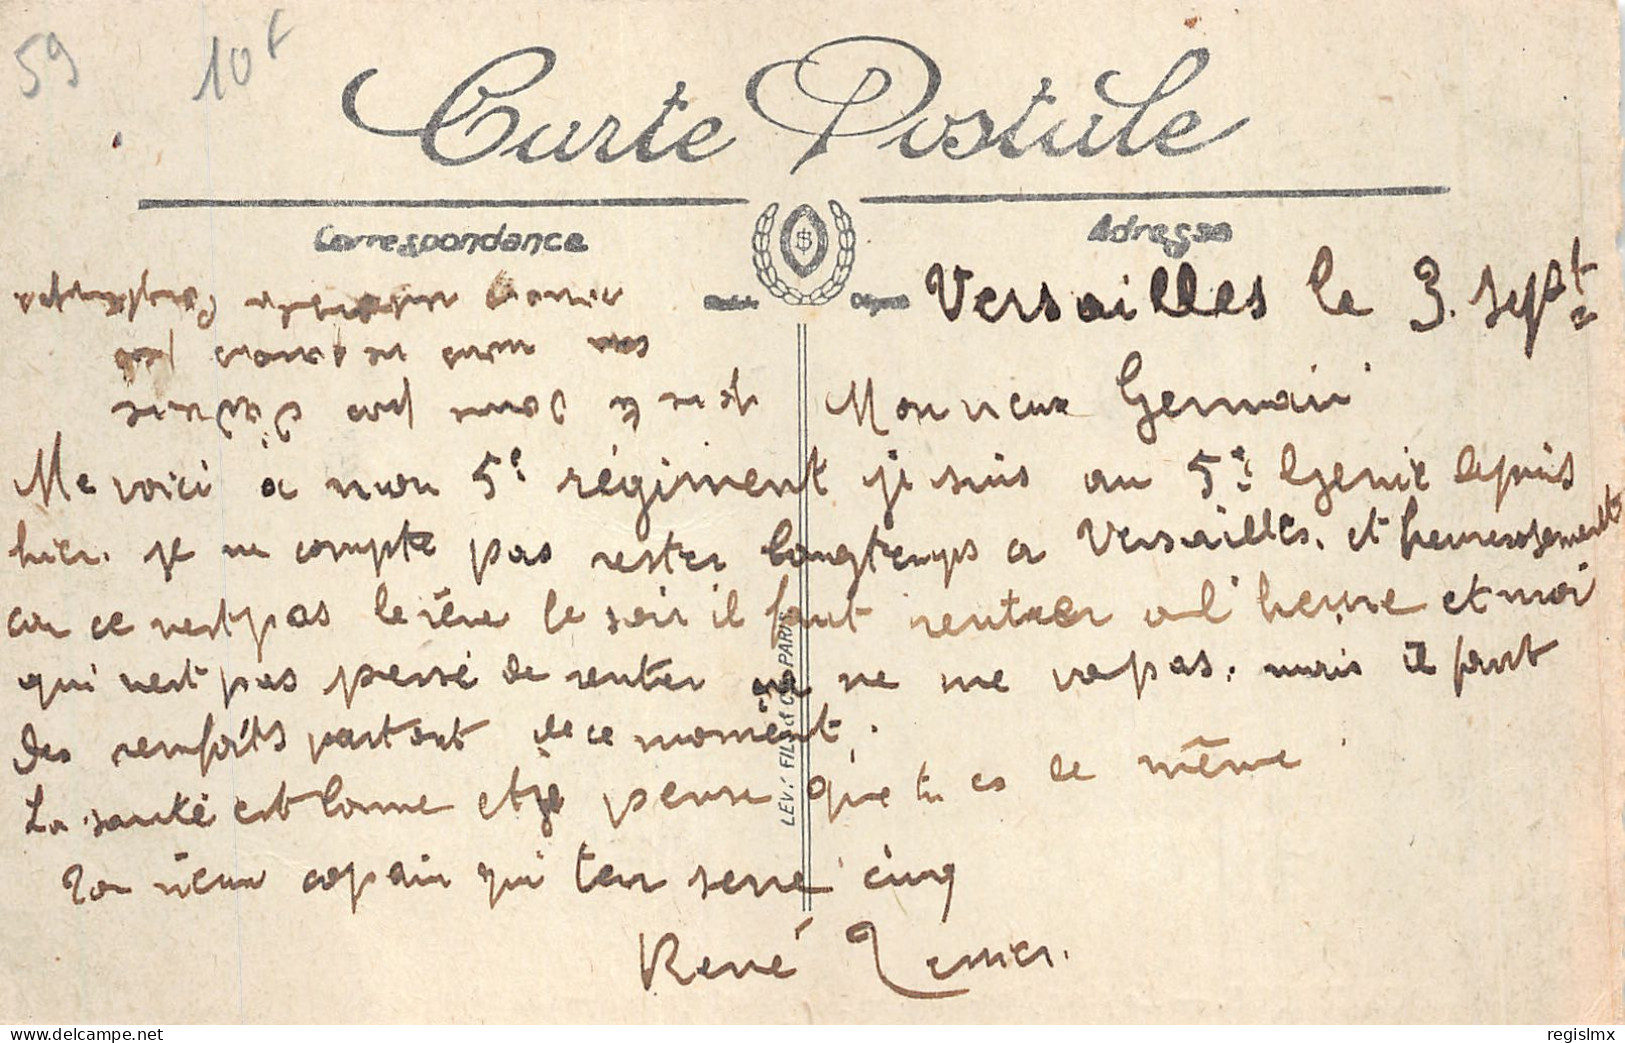 59
10f
Carte Postale
Correspondance
Adresse
Versailles le 3. Sept
Mon vieux Germain
Me voici a mon 5e régiment je suis au 5e Genie depuis
hier. je ne compte pas rester longtemps a Versailles. et heureusement
car ce nest pas le rêve le soir il faut rentrer a l'heure et moi
qui nest pas pressé de rentrer ca ne me va pas. mais il faut
des renforts partout de ce moment.
La santé est bonne et je pense que tu es de même
Ton vieux copain qui ten serre cinq
René
je ne te donne pas d'adresse
car nous ne savons pas
LEV. FILS & Cie PARIS
regislmx
www.delcampe.net